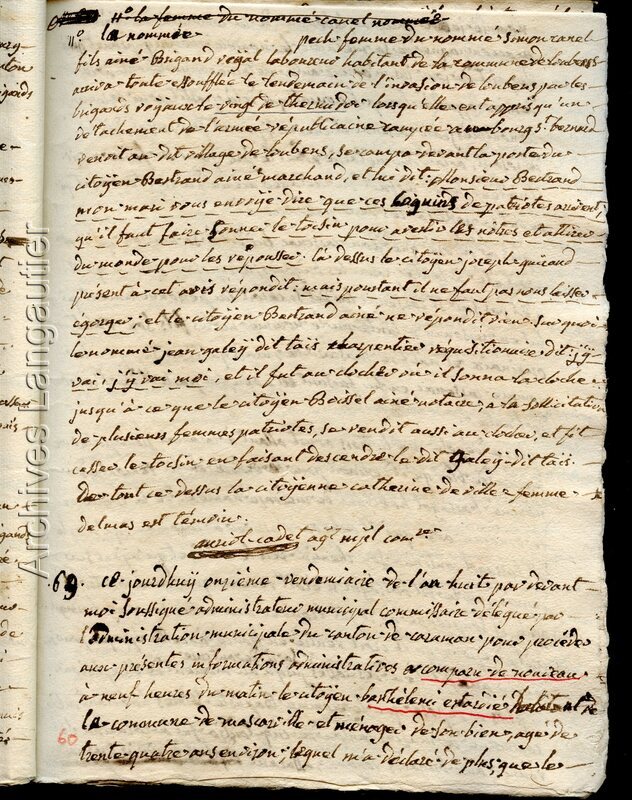 11º la femme du nommé canel nommée
11º la nommée pech femme du nommé simon canel
fils ainé Brigand royal laboureur habitant de la commune de loubens
arriva toute essoufflée le lendemain de l'invasion de loubens par les
brigands royaux le vingt de thermidor lorsqu'elle eut appris qu'un
detachement de l'armée républicaine campée a bourg s. bernard
venoit au dit village de loubens, se campa devant la porte du
citoyen Bertrand ainé marchand, et lui dit: Monsieur Bertrand
mon mari vous envoye dire que ces coquins de patriotes arrivent,
qu'il faut faire sonner le tocsin pour avertir les nôtres et attirer
du monde pour les répousser. là dessus le citoyen joseph
présent à cet avis répondit: mais pourtant il ne faut pas nous laisser
egorger; et le citoyen Bertrand ainé ne répondit rien. Sur quoi
le nommé jean galey dit tais charpentier réquisitionnaire dit: j'y
vai, j'y vai moi, et il fut au clocher où il sonna la cloche
jusqu'à ce que le citoyen Boissel ainé notaire, à la sollicitation
de plusieurs femmes patriotes, se rendit aussi au clocher, et fit
cesser le tocsin en faisant descendre le dit Galey dit tais.
De tout ce dessus la citoyenne catherine deville femme
delmas est témoin.
auriol cadet agt mpl comre
69. ce jourdhuy onzième vendemiaire de l'an huit par devant
moi soussigné administrateur municipal commissaire délégué par
l'administration municipale du canton de caraman pour procéder
aux présentes informations administratives a comparu de nouveau
à neuf heures du matin le citoyen barthélemi estardié habitant de
la commune de mascarville et ménager de son bien, agé de
60 trente quatre ans environ; lequel m'a déclaré de plus, que le
Archives Langautier